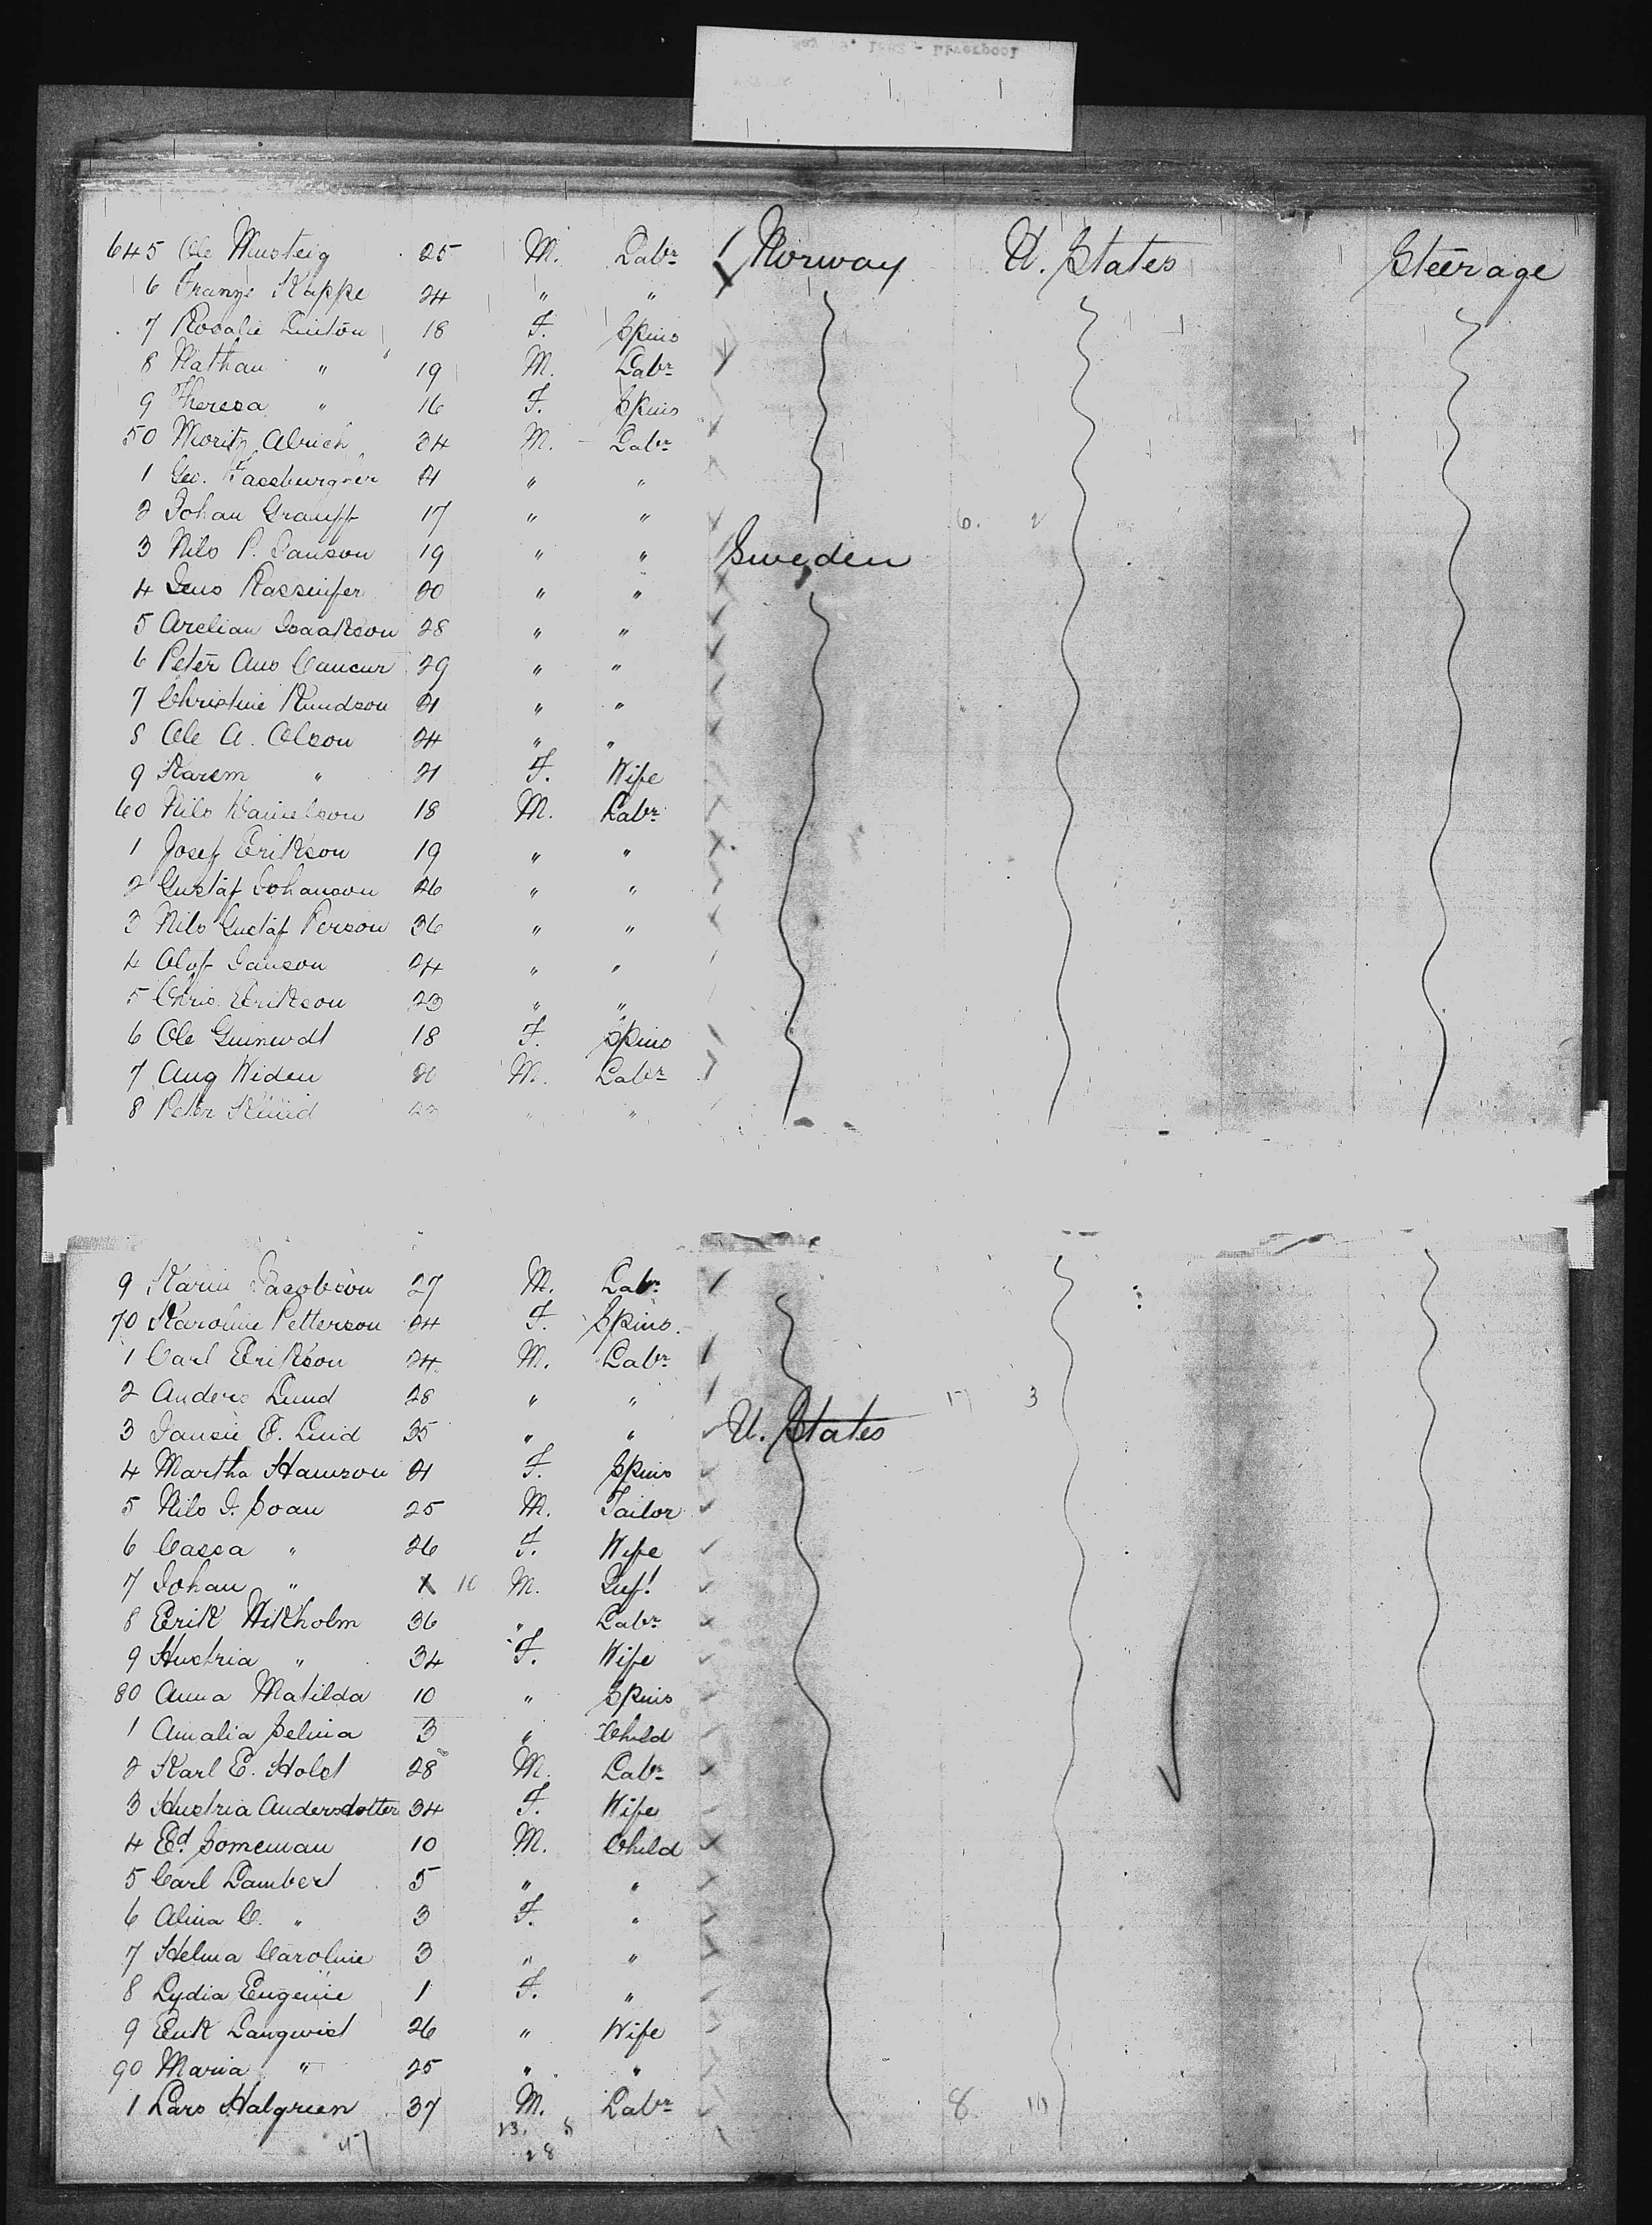 645 Ole Musteig 25 M. Labr Norway U. States Steerage
6 Franze Kappe 24 " "
7 Rosalie Linton 18 F. Spins
8 Nathan " 19 M. Labr
9 Theresa " 16 F. Spins
50 Moritz Alrich 24 M. Labr
1 Geo. 21 " "
2 Johan Grampp 17 " "
3 Nils P. Janson 19 " " Sweden
4 Jens 20 " "
5 Isaakson 28 " "
6 Peter Aus 29 " "
7 Christine Knudson 21 " "
8 Ole A. Olson 24 " "
9 Karem " 21 F. Wife
60 Nils Danielson 18 M. Labr
1 Josef Erikson 19 " "
2 Gustaf Johanson 26 " "
3 Nils Gustaf Person 36 " "
4 Olof Janson 24 " "
5 Chris. Erikson 23 " "
6 Ole 18 F. Spins
7 Aug Widen 20 M. Labr
8 Peter " "
9 Karin Jacobson 27 M. Labr
70 Karoline Petterson 24 F. Spins.
1 Carl Erikson 24 M. Labr
2 Anders Lund 28 " "
3 E. Lind 35 " " U. States
4 Martha Hamson 21 F. Spins
5 Nils J. Soan 25 M. Tailor
6 Cassa " 26 F. Wife
7 Johan " 10 M. Inft
8 Erik Wikholm 36 " Labr
9 Hustria " 34 F. Wife
80 Anna Matilda 10 " Spins
1 Amalia Selina 3 " Child
2 Karl E. Holst 28 M. Labr
3 Hustria Andersdotter 34 F. Wife
4 Ed. Someman 10 M. Child
5 Carl Lambert 5 " "
6 Alina C. " 3 F. "
7 Helma Caroline 3 " "
8 Lydia Eugenie 1 F. "
9 Erik Langwist 26 " Wife
90 Maria " 25 " "
1 Lars Halgreen 37 M. Labr 8
28